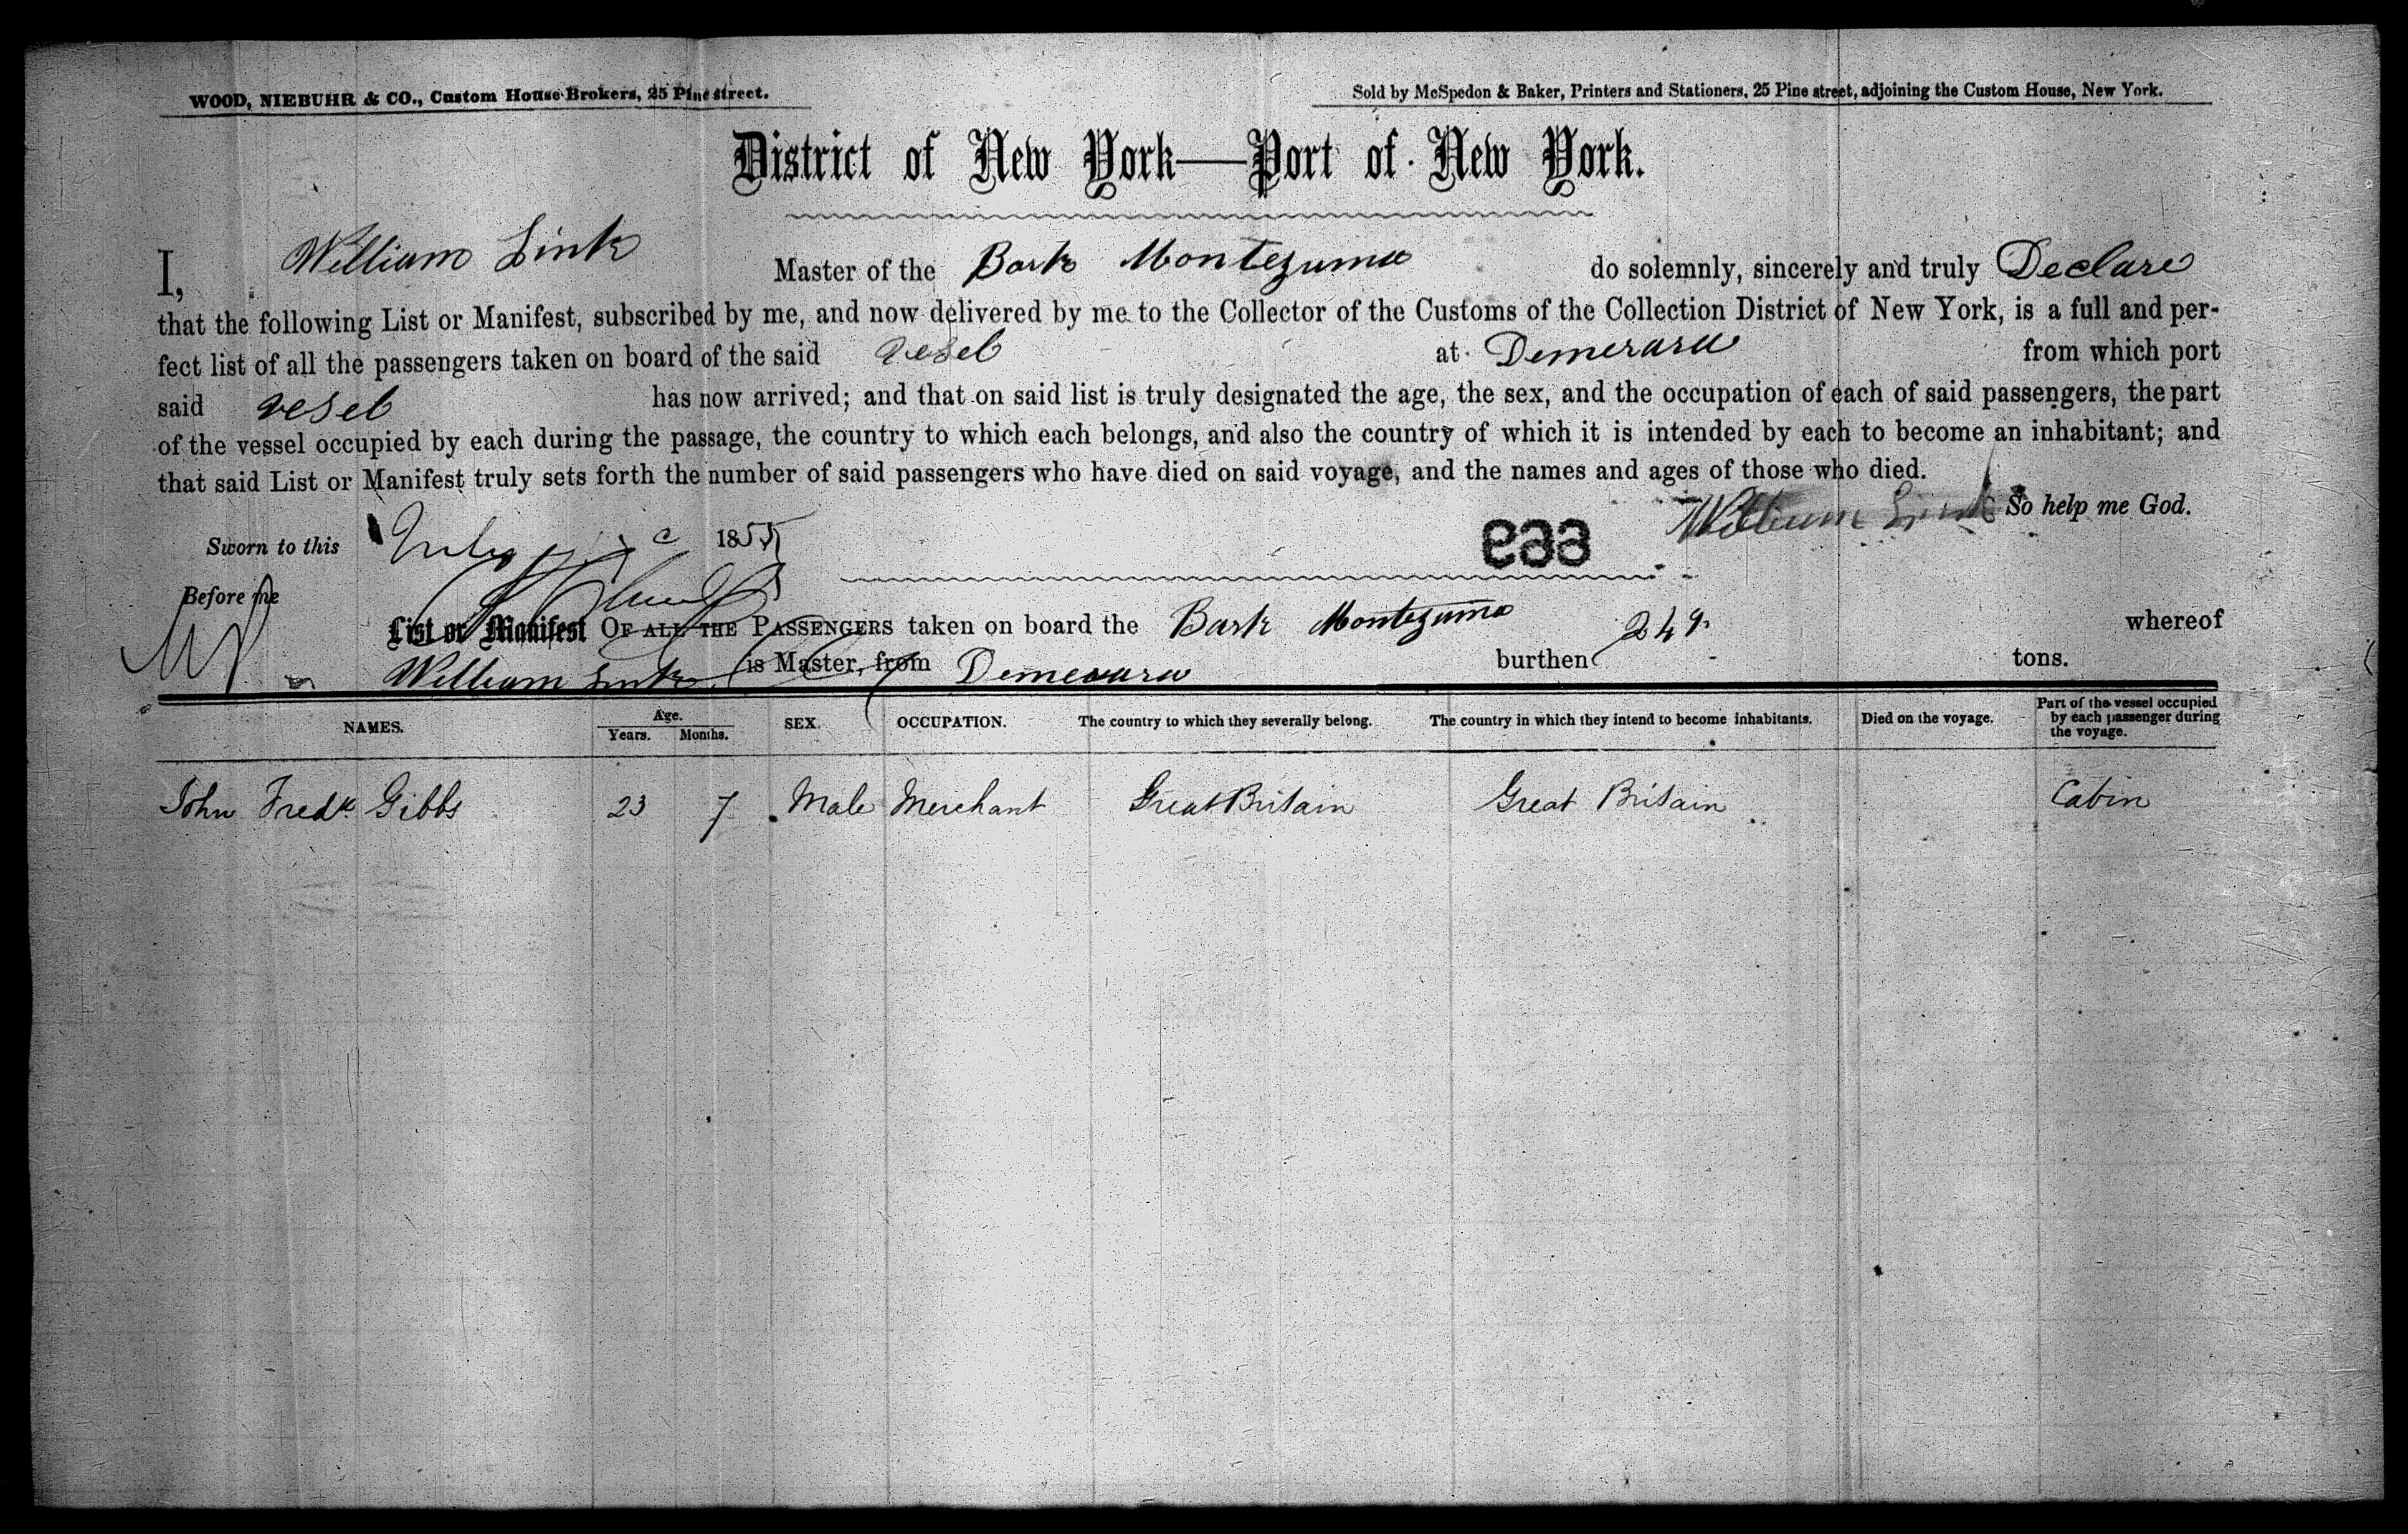 WOOD, NIEBUHR & CO., Custom House Brokers, 25 Pine street.
Sold by McSpedon & Baker, Printers and Stationers, 25 Pine street, adjoining the Custom House, New York.
District of New York—Port of New York.
I, William Link Master of the Bark Montezuma do solemnly, sincerely and truly Declare
that the following List or Manifest, subscribed by me, and now delivered by me to the Collector of the Customs of the Collection District of New York, is a full and per-
fect list of all the passengers taken on board of the said vesel at Demerara from which port
said vesel has now arrived; and that on said list is truly designated the age, the sex, and the occupation of each of said passengers, the part
of the vessel occupied by each during the passage, the country to which each belongs, and also the country of which it is intended by each to become an inhabitant; and
that said List or Manifest truly sets forth the number of said passengers who have died on said voyage, and the names and ages of those who died.
William Link So help me God.
Sworn to this July 1855
669
Before me
List or Manifest OF ALL THE PASSENGERS taken on board the Bark Montezuma whereof
William Link is Master, from Demerara burthen 249 tons.
NAMES. Age. Years. Months. SEX. OCCUPATION. The country to which they severally belong. The country in which they intend to become inhabitants. Died on the voyage. Part of the vessel occupied by each passenger during the voyage.
John Fredk Gibbs 23 7 Male Merchant Great Britain Great Britain Cabin